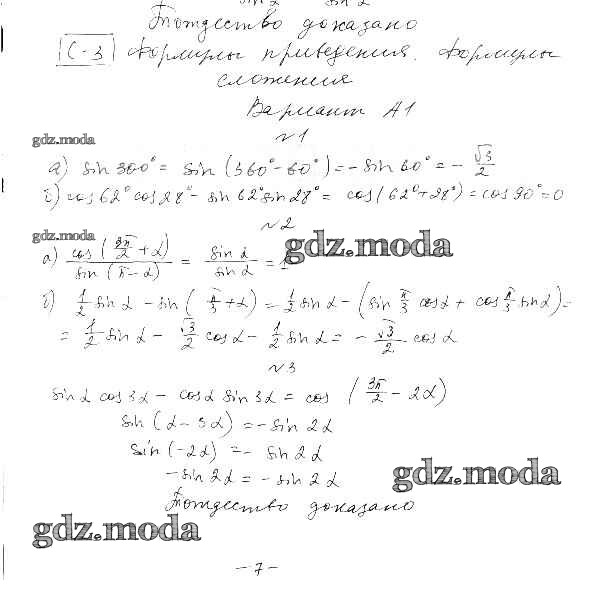 sin 2 sin 2
Тождество доказано
С-3 Формулы приведения. Формулы
сложения
Вариант А1
№1
gdz.moda
а) sin 300° = sin (360° - 60°) = - sin 60° = - √3/2
б) cos 62° cos 28° - sin 62° sin 28° = cos (62° + 28°) = cos 90° = 0
№2
gdz.moda
gdz.moda
а) cos (3π/2 + α) / sin (π - α) = sin α / sin α = 1
б) 1/2 sin α - sin (π/3 + α) = 1/2 sin α - (sin π/3 cos α + cos π/3 sin α) =
= 1/2 sin α - √3/2 cos α - 1/2 sin α = - √3/2 cos α
№3
sin α cos 3α - cos α sin 3α = cos (3π/2 - 2α)
sin (α - 3α) = - sin 2α
sin (-2α) = - sin 2α
- sin 2α = - sin 2α
gdz.moda
Тождество доказано
gdz.moda
- 7 -